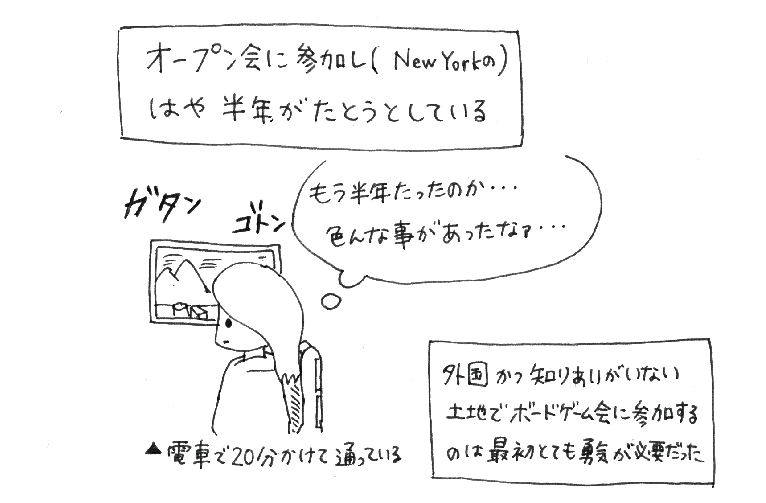 オープン会に参加し( New Yorkの)
はや 半年がたとうとしている
ガタン
ゴトン
もう半年たったのか・・・
色んな事があったなァ・・・
外国かつ知りあいがいない
土地でボードゲーム会に参加する
のは最初とても勇気が必要だった
▲電車で20分かけて通っている